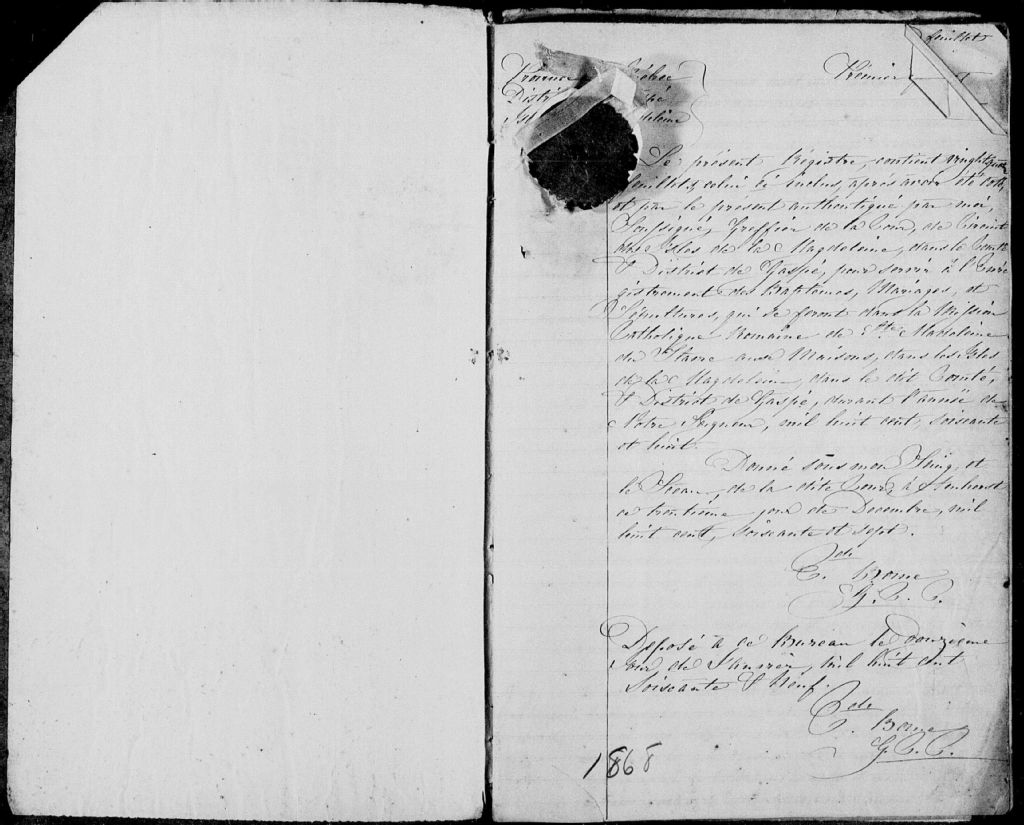 feuillets
Province Québec
Distri
Isl deleine
Premier
Le présent Régistre, contient vingt
feuillets, celui ci inclus, après avoir été coté,
et par le présent authentiqué par moi,
Soussigné, Greffier de la Cour, de Circuit
des Isles de la Magdeleine, dans le Comté
& District de Gaspé, pour servir à l'Enré
gistrement des Baptêmes, Mariages, et
Sépultures, qui se feront dans la Mission
Catholique Romaine de Ste Madeleine
du Havre aux Maisons, dans les Isles
de la Magdeleine, dans le dit Comté,
& District de Gaspé, durant l'année de
Notre Seigneur, mil huit cent, soixante
et huit.
Donné sous mon Seing, et
le Sceau, de la dite Cour, à Amherst
ce trentième jour de Decembre, mil
huit cent, soixante et sept.
de
Brome
G. C. C.
Déposé à cé Bureau le Douzieme
jour de Janvier, mil huit cent
Soixante & Neuf.
de
Brome
G. C. C.
1868